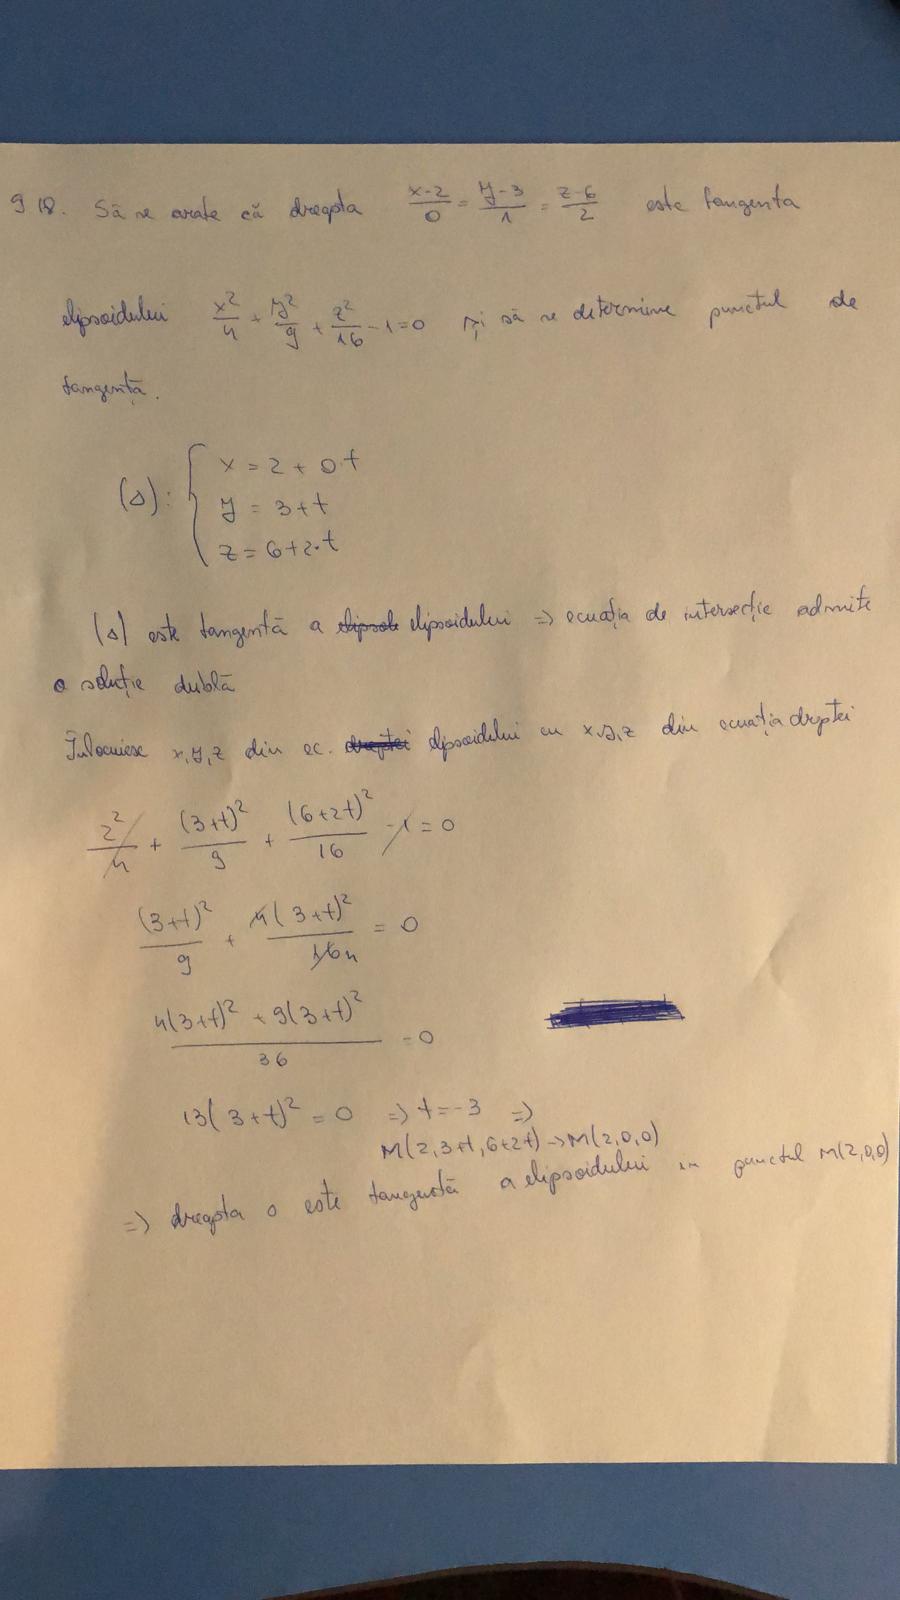 9.18. Să se arate că dreapta (x-2)/0 = (y-3)/1 = (z-6)/2 este tangenta
elipsoidului x²/4 + y²/9 + z²/16 - 1 = 0 și să se determine punctul de
tangență.
(Δ): { x = 2 + 0·t
y = 3+t
z = 6+2·t
(Δ) este tangentă a elipsoidului => ecuația de intersecție admite
o soluție dublă
Înlocuiesc x,y,z din ec. elipsoidului cu x,y,z din ecuația dreptei
2²/4 + (3+t)²/9 + (6+2t)²/16 - 1 = 0
(3+t)²/9 + 4(3+t)²/16 4 = 0
(4(3+t)² + 9(3+t)²)/36 = 0
13(3+t)² = 0 => t = -3 =>
M(2, 3+t, 6+2t) -> M(2,0,0)
=> dreapta este tangentă a elipsoidului in punctul M(2,0,0)